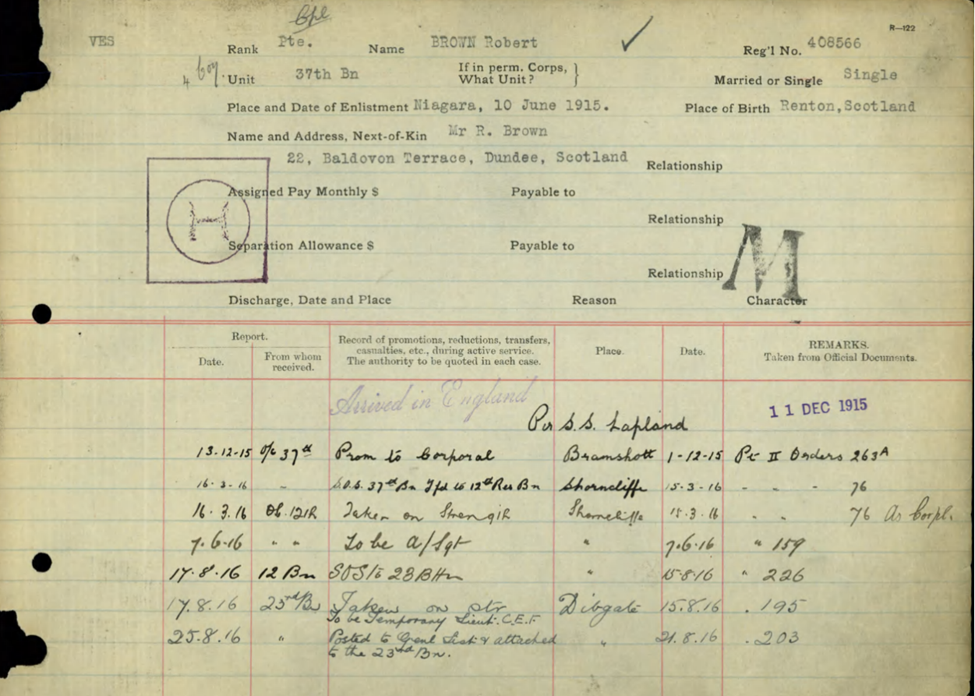 Cpl
R—122
VES Rank Pte. Name BROWN Robert Reg'l No. 408566
4 Coy Unit 37th Bn If in perm. Corps, What Unit? Married or Single Single
Place and Date of Enlistment Niagara, 10 June 1915. Place of Birth Renton, Scotland
Name and Address, Next-of-Kin Mr R. Brown
22, Baldovon Terrace, Dundee, Scotland Relationship
Assigned Pay Monthly $ Payable to
Relationship
H
Separation Allowance $ Payable to
Relationship
M
Discharge, Date and Place Reason Character
Report.
Date. From whom received. Record of promotions, reductions, transfers, casualties, etc., during active service. The authority to be quoted in each case. Place. Date. REMARKS. Taken from Official Documents.
Arrived in England 11 DEC 1915
Per S.S. Lapland
13-12-15 O/c 37th Prom to Corporal Bramshott 1-12-15 Pt II Orders 263A
16-3-16 " S.O.S. 37th Bn Tfd to 12th Res Bn Shorncliffe 15-3-16 " " 76
16.3.16 Taken on Strength Shorncliffe 15.3.16 " " 76 As Corpl.
7.6.16 " " To be A/Sgt " 7.6.16 " 159
17.8.16 12 Bn SOS to 23 Bn " 15.8.16 " 226
17.8.16 23rd Bn Taken on str Dibgate 15.8.16 " 195
To be Temporary Lieut. C.E.F
25.8.16 " Posted to Genl List & attached " 21.8.16 " 203
to the 23rd Bn.